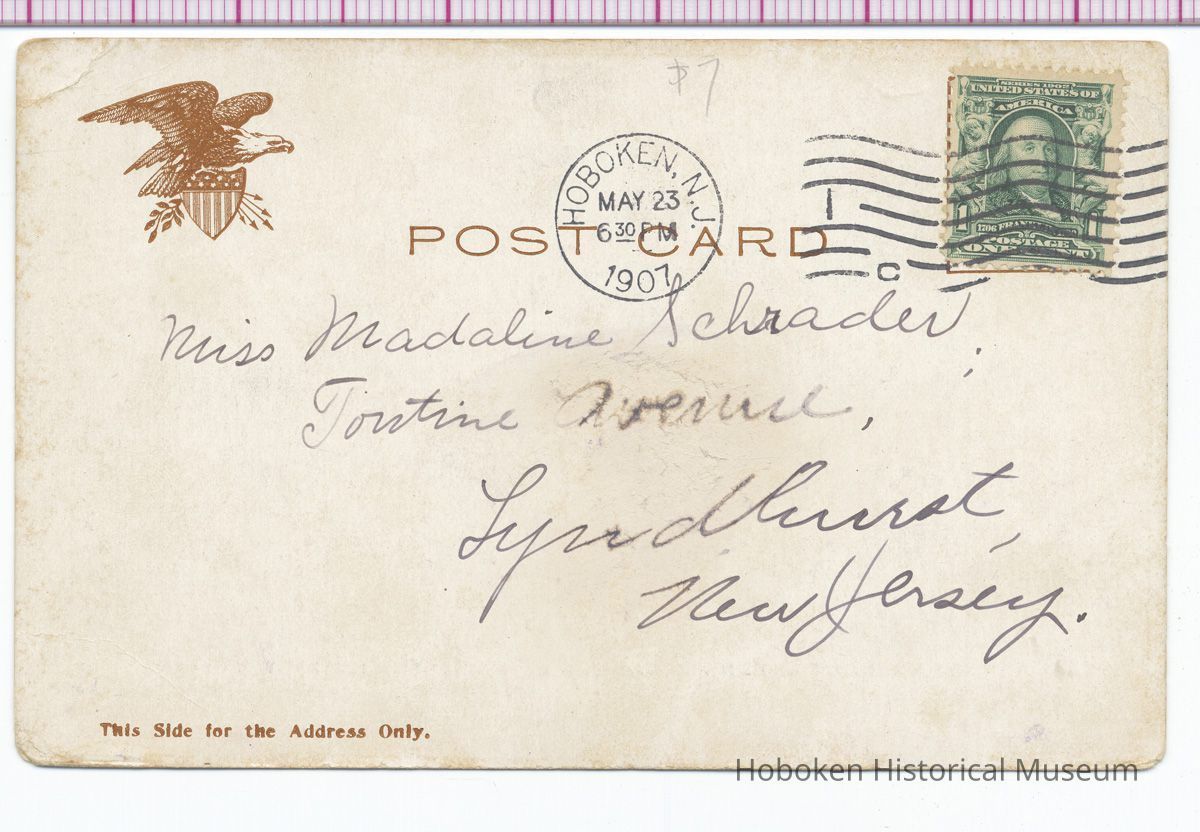 $7
SERIES 1902
UNITED STATES OF
AMERICA
HOBOKEN, N.J.
MAY 23
6 30 PM
1907
1
C
POST CARD
POSTAGE
ONE CENT
Miss Madaline Schrader,
Tontine Avenue,
Lyndhurst,
New Jersey.
This Side for the Address Only.
Hoboken Historical Museum